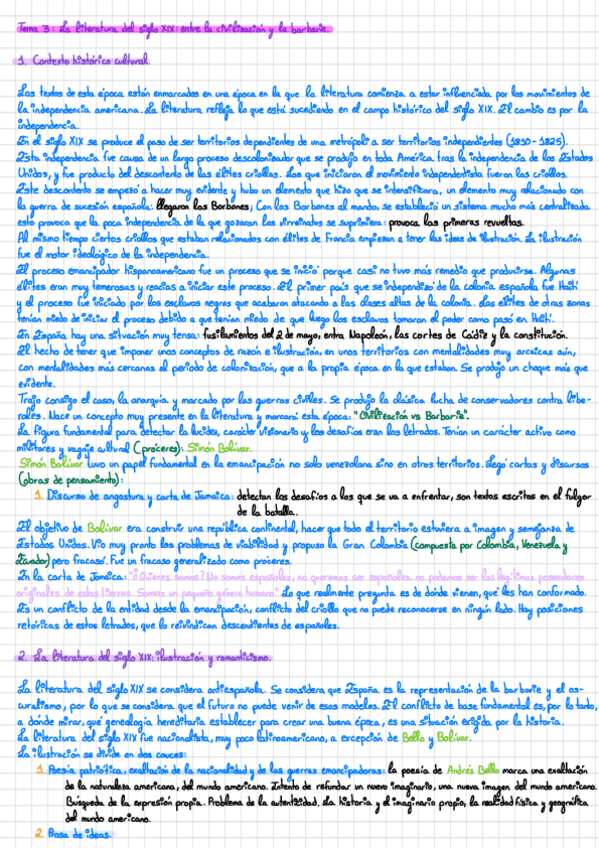 Tema 3: La literatura del siglo XIX: entre la civilización y la barbarie.
1. Contexto histórico cultural.
Los textos de esta época están enmarcados en una época en la que la literatura comienza a estar influenciada por los movimientos de
la independencia americana. La literatura refleja lo que está sucediendo en el campo histórico del siglo XIX. El cambio es por la
independencia.
En el siglo XIX se produce el paso de ser territorios dependientes de una metrópoli a ser territorios independientes (1810-1825).
Esta independencia fue causa de un largo proceso descolonizador que se produjo en toda América tras la independencia de los Estados
Unidos, y fue producto del descontento de las élites criollas. Los que iniciaron el movimiento independentista fueron los criollos.
Este descontento se empezó a hacer muy evidente y hubo un elemento que hizo que se intensificara, un elemento muy relacionado con
la guerra de sucesión española: llegaron los Borbones; Con los Borbones al mando, se estableció un sistema mucho más centralizado.
esto provoca que la poca independencia de la que gozaran los virreinatos se suprimiera: provoca las primeras revueltas.
Al mismo tiempo ciertos criollos que estaban relacionados con élites de Francia empiezan a tener las ideas de ilustración. La ilustración
fue el motor ideológico de la independencia.
El proceso emancipador hispanoamericano fue un proceso que se inició porque casi no tuvo más remedio que producirse. Algunas
élites eran muy temerosas y reacias a iniciar este proceso. El primer país que se independizó de la colonia española fue Haití
y el proceso fue iniciado por los esclavos negros que acabaron atacando a las clases altas de la colonia. Las élites de otras zonas
tenían miedo de iniciar el proceso debido a que tenían miedo de que luego los esclavos tomaron el poder como pasó en Haití.
En España hay una situación muy tensa: fusilamientos del 2 de mayo, entra Napoleón, las cortes de Cádiz y la constitución.
El hecho de tener que imponer unos conceptos de razón e ilustración, en unos territorios con mentalidades muy arcaicas aún,
con mentalidades más cercanas al periodo de colonización, que a la propia época en la que estaban. Se produjo un choque más que
evidente.
Trajo consigo el caos, la anarquía y marcado por las guerras civiles. Se produjo la clásica lucha de conservadores contra libe-
rales. Nace un concepto muy presente en la literatura y marcará esta época: "Civilización vs Barbarie".
La figura fundamental para detectar la lucidez, carácter visionario y los desafíos eran los letrados. Tenían un carácter activo como
militares y vagaje cultural (próceres): Simón Bolívar.
Simón Bolívar tuvo un papel fundamental en la emancipación no solo venezolana sino en otros territorios. Legó cartas y discursos
(obras de pensamiento):
1. Discurso de angostura y carta de Jamaica: detectan los desafíos a los que se va a enfrentar, son textos escritos en el fulgor
de la batalla.
El objetivo de Bolívar era construir una república continental, hacer que todo el territorio estuviera a imagen y semejanza de
Estados Unidos. Vio muy pronto los problemas de viabilidad y propuso la Gran Colombia (compuesta por Colombia, Venezuela y
Ecuador) pero fracasó. Fue un fracaso generalizado como próceres.
En la carta de Jamaica: "¿Quiénes somos? No somos españoles, no queremos ser españoles, no podemos ser los legítimos poseedores
originales de estas tierras. Somos un pequeño género humano". Lo que realmente pregunta es de dónde vienen, qué les han conformado.
Es un conflicto de la entidad desde la emancipación, conflicto del criollo que no puede reconocerse en ningún lado. Hay posiciones
retóricas de estos letrados, que lo reivindican descendientes de españoles.
2. La literatura del siglo XIX: ilustración y romanticismo.
La literatura del siglo XIX se considera antiespañola. Se considera que España es la representación de la barbarie y el os-
curalismo, por lo que se considera que el futuro no puede venir de esos modelos. El conflicto de base fundamental es, por lo tanto,
a dónde mirar, qué genealogía hereditaria establecer para crear una buena época, es una situación exigida por la historia.
La literatura del siglo XIX fue nacionalista, muy poco latinoamericano, a excepción de Bello y Bolívar.
La ilustración se divide en dos cauces:
1. Poesía patriótica, exaltación de la nacionalidad y de las guerras emancipadoras: la poesía de Andrés Bello marca una exaltación
de la naturaleza americana, del mundo americano. Intento de refundar un nuevo imaginario, una nueva imagen del mundo americano.
Búsqueda de la expresión propia. Problema de la autenticidad, la historia y el imaginario propio, la realidad física y geográfica
del mundo americano.
2. Prosa de ideas.